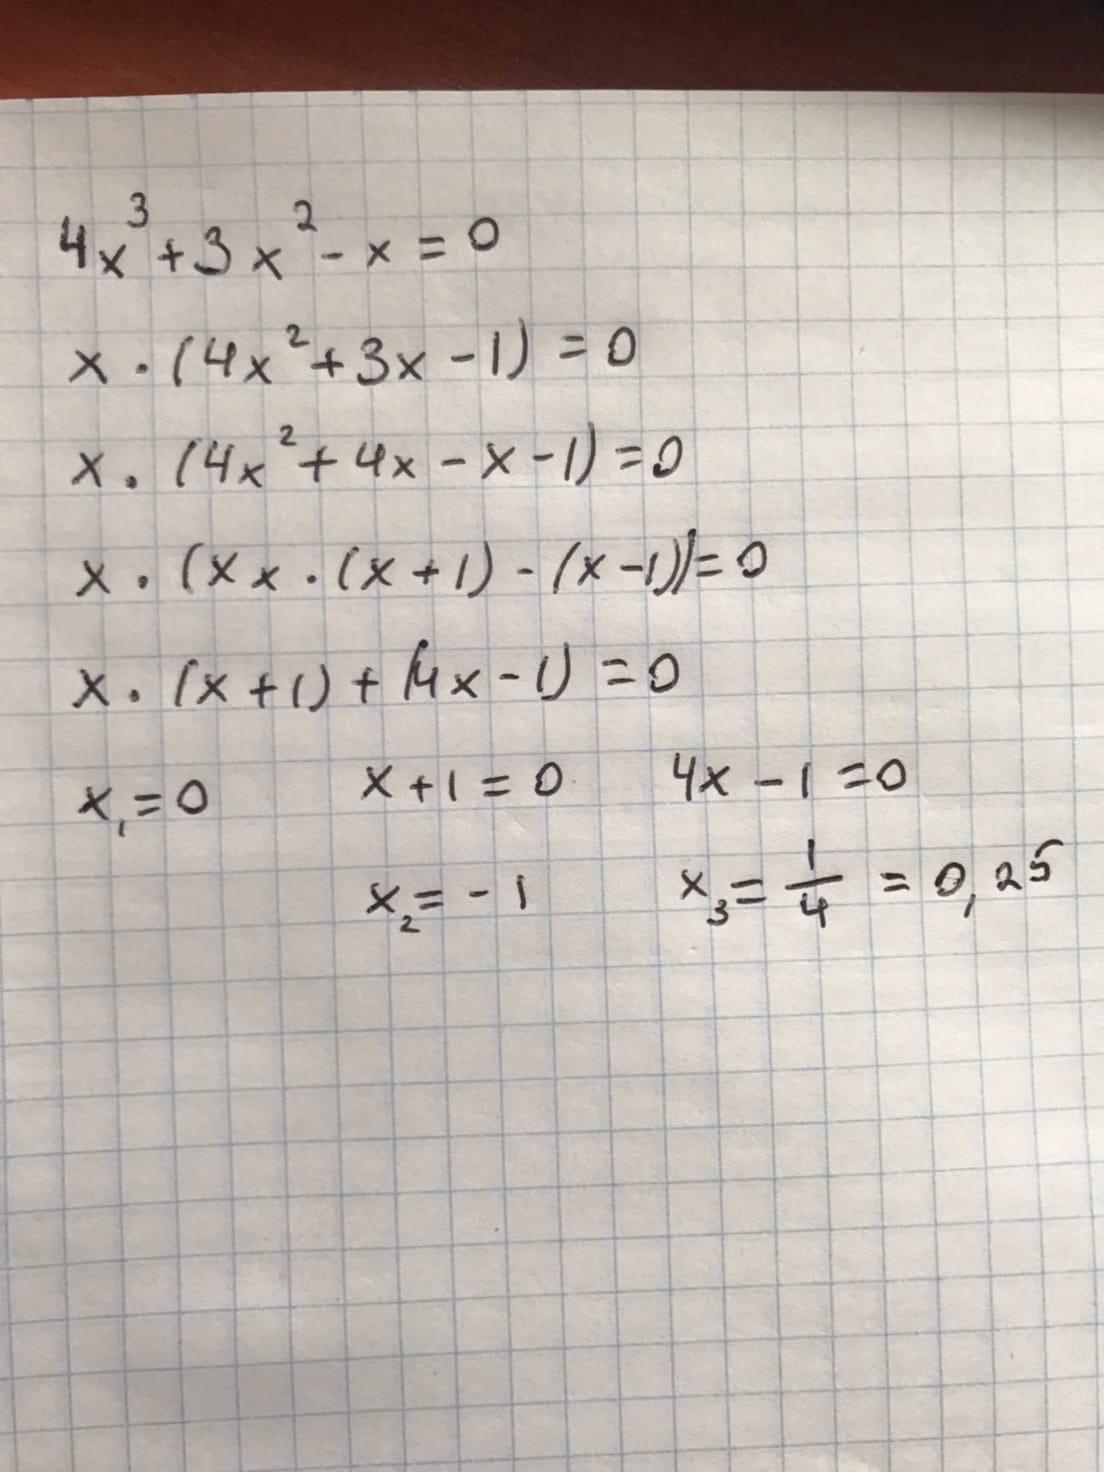 4x³+3x²-x=0
x·(4x²+3x-1)=0
x·(4x²+4x-x-1)=0
x·(xx·(x+1)-(x-1))=0
x·(x+1)+(4x-1)=0
x₁=0 x+1=0 4x-1=0
x₂=-1 x₃=1/4=0,25